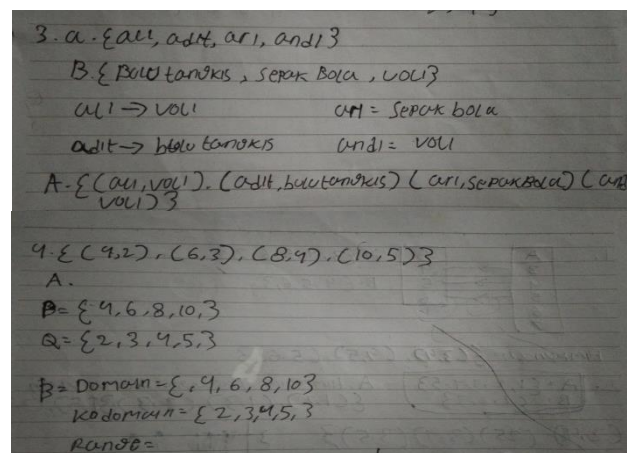 3. a. {ali, adit, ari, andi}
B. {Bulu tangkis, sepak Bola, voli}
ali → voli ari = sepak bola
adit → bulu tangkis andi = voli
A. {(ali, voli). (adit, bulutangkis) (ari, sepakBola) (and
voli)}
4. {(4,2), (6,3), (8,4), (10,5)}
A.
P = {4,6,8,10,}
Q = {2,3,4,5,}
B = Domain = {,4,6,8,10}
Kodomain = {2,3,4,5,}
Range =